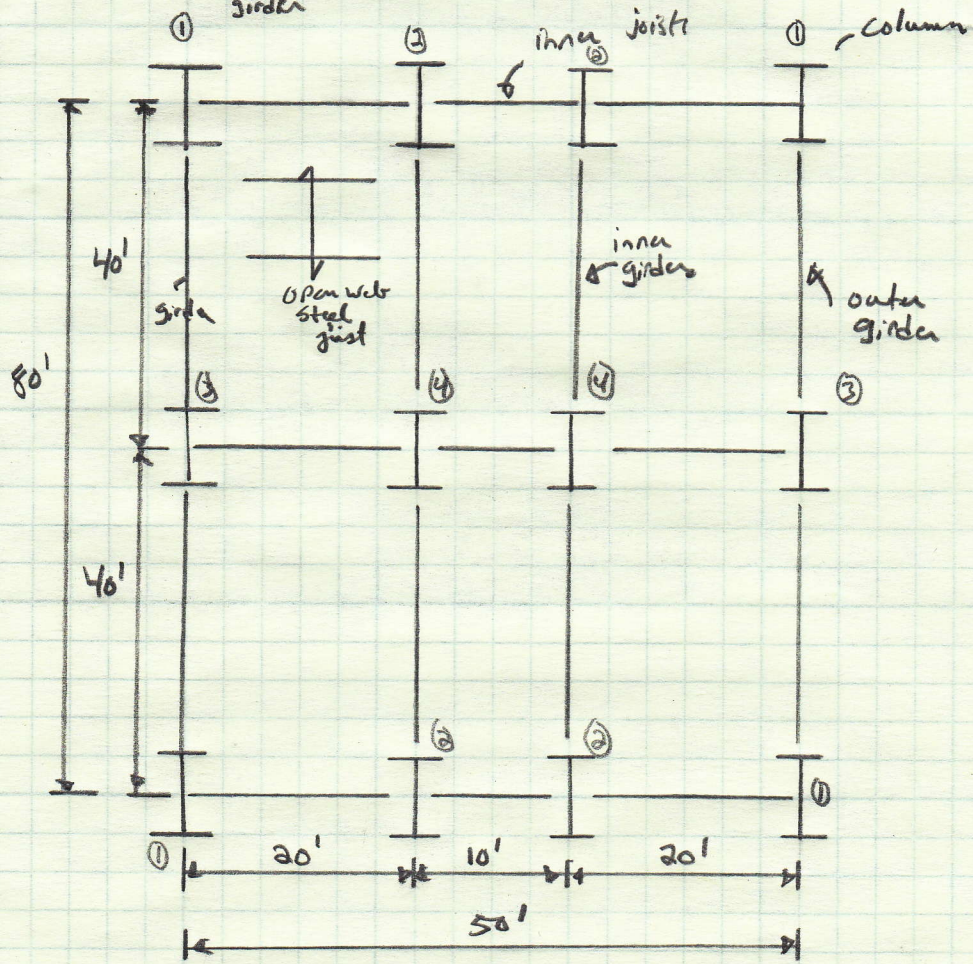 girder
① ② inner joists ② ① column
40'
80'
girder
open web
steel
joist
inner
girders
outer
girder
③ ④ ④ ③
40'
② ②
① ①
20' 10' 20'
50'